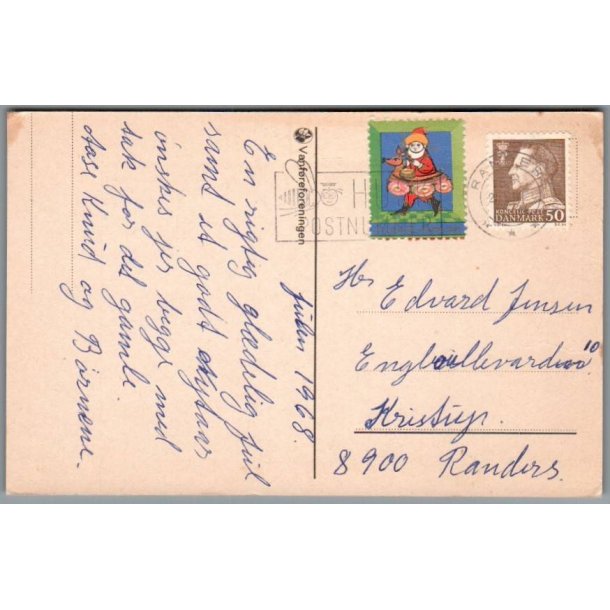 Julen 1968.
En rigtig glædelig Jul
samt et godt Nytaar
ønskes jer begge med
tak for det gamle
Aase Knud og Børnene.
Vanføreforeningen
POSTNUMMER
KONGELIG POST
DANMARK 50
Hr Edvard Jensen
Engboullevarden 10
Kristrup.
8900 Randers.